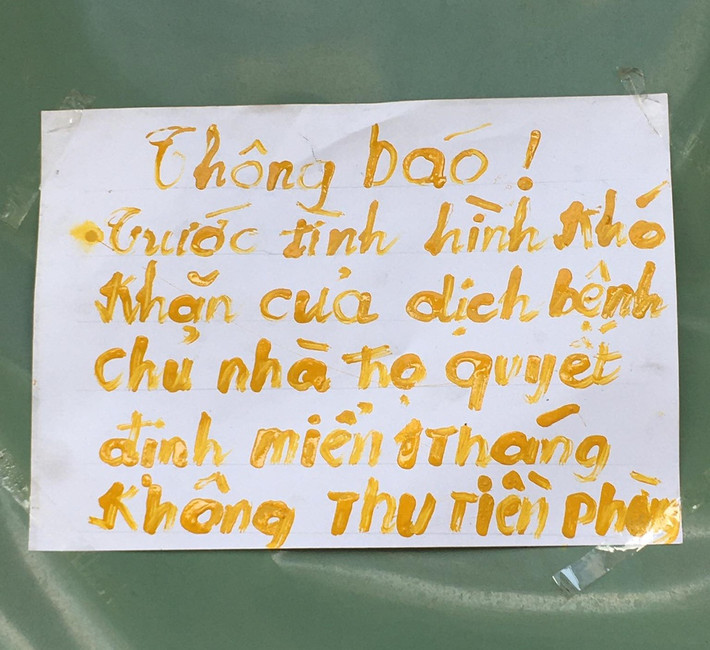 Thông báo !
Trước tình hình khó
khặn của dịch bệnh
chu nhà trọ quyết
định miễn 1 tháng
không thu tiền phòng